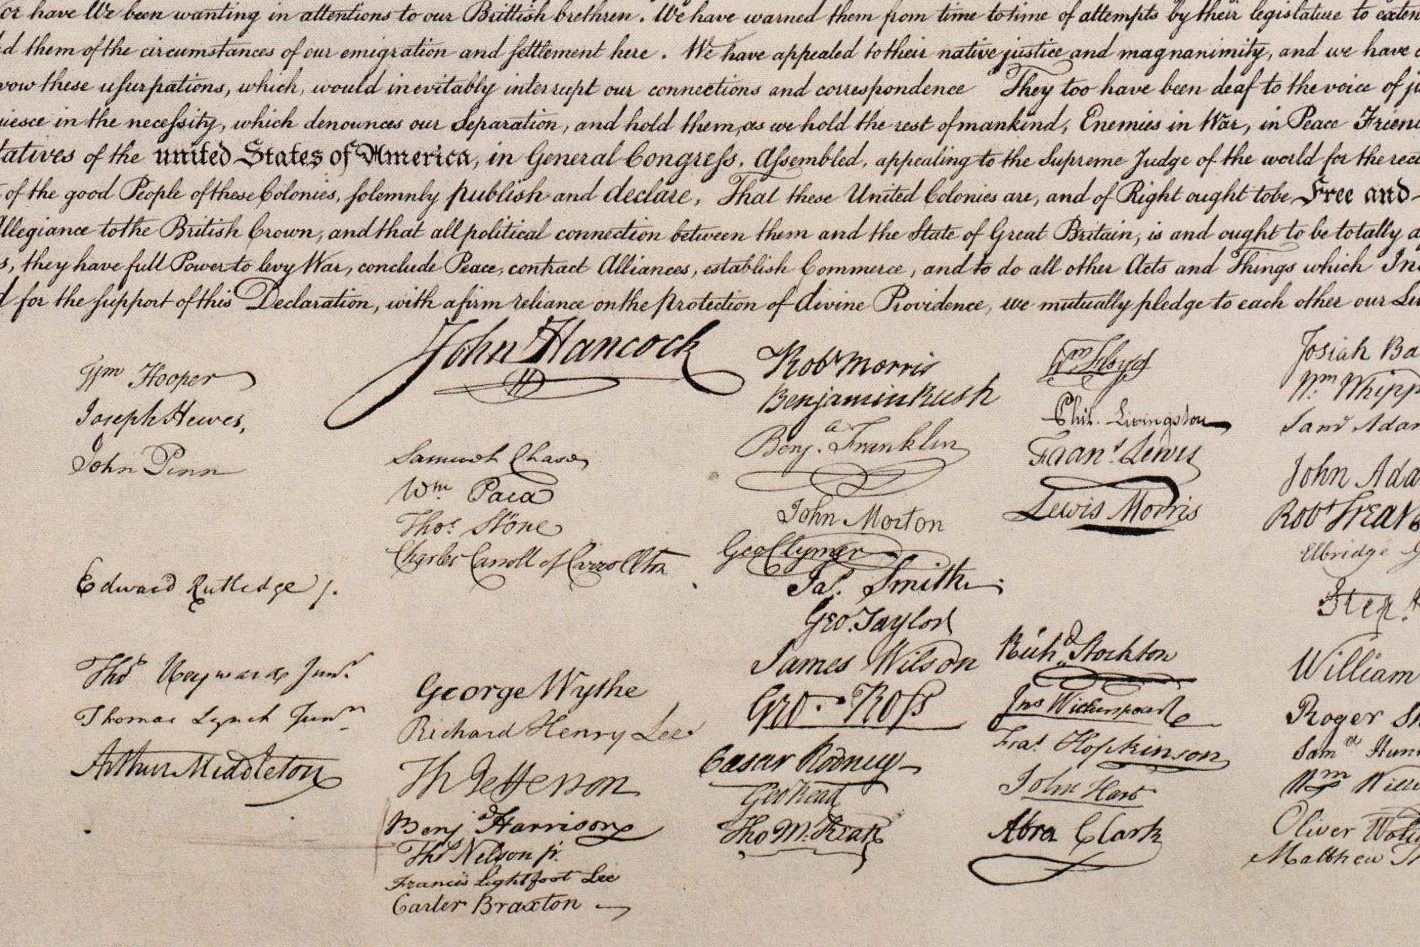 or have We been wanting in attentions to our Brittish brethren. We have warned them from time to time of attempts by their legislature to exten
d them of the circumstances of our emigration and settlement here. We have appealed to their native justice and magnanimity, and we have c
vow these usurpations, which, would inevitably interrupt our connections and correspondence They too have been deaf to the voice of ju
uiesce in the necessity, which denounces our Separation, and hold them, as we hold the rest of mankind, Enemies in War, in Peace Friend
tatives of the united States of America, in General Congress, Assembled, appealing to the Supreme Judge of the world for the rect
of the good People of these Colonies, solemnly publish and declare, That these United Colonies are, and of Right ought to be Free and
Allegiance to the British Crown, and that all political connection between them and the State of Great Britain, is and ought to be totally d
s, they have full Power to levy War, conclude Peace, contract Alliances, establish Commerce, and to do all other Acts and Things which In
d for the support of this Declaration, with a firm reliance on the protection of divine Providence, we mutually pledge to each other our Li
John Hancock
Wm Hooper
Joseph Hewes,
John Penn
Edward Rutledge /.
Thos Heyward Junr.
Thomas Lynch Junr
Arthur Middleton
Samuel Chase
Wm. Paca
Thos. Stone
Charles Carroll of Carrollton
George Wythe
Richard Henry Lee
Th Jefferson
Benja Harrison
Thos Nelson jr.
Francis Lightfoot Lee
Carter Braxton
Robt Morris
Benjamin Rush
Benja. Franklin
John Morton
Geo Clymer
Jas. Smith.
Geo. Taylor
James Wilson
Geo. Ross
Caesar Rodney
Geo Read
Tho M:Kean
Wm Floyd
Phil. Livingston
Frans. Lewis
Lewis Morris
Richd. Stockton
Jno Witherspoon
Fras. Hopkinson
John Hart
Abra Clark
Josiah Ba
Wm. Whipp
Saml Adam
John Ada
Robt Treat
Elbridge G
Step. H
William
Roger Sh
Samel Hun
Wm Willi
Oliver Wolc
Matthew Th